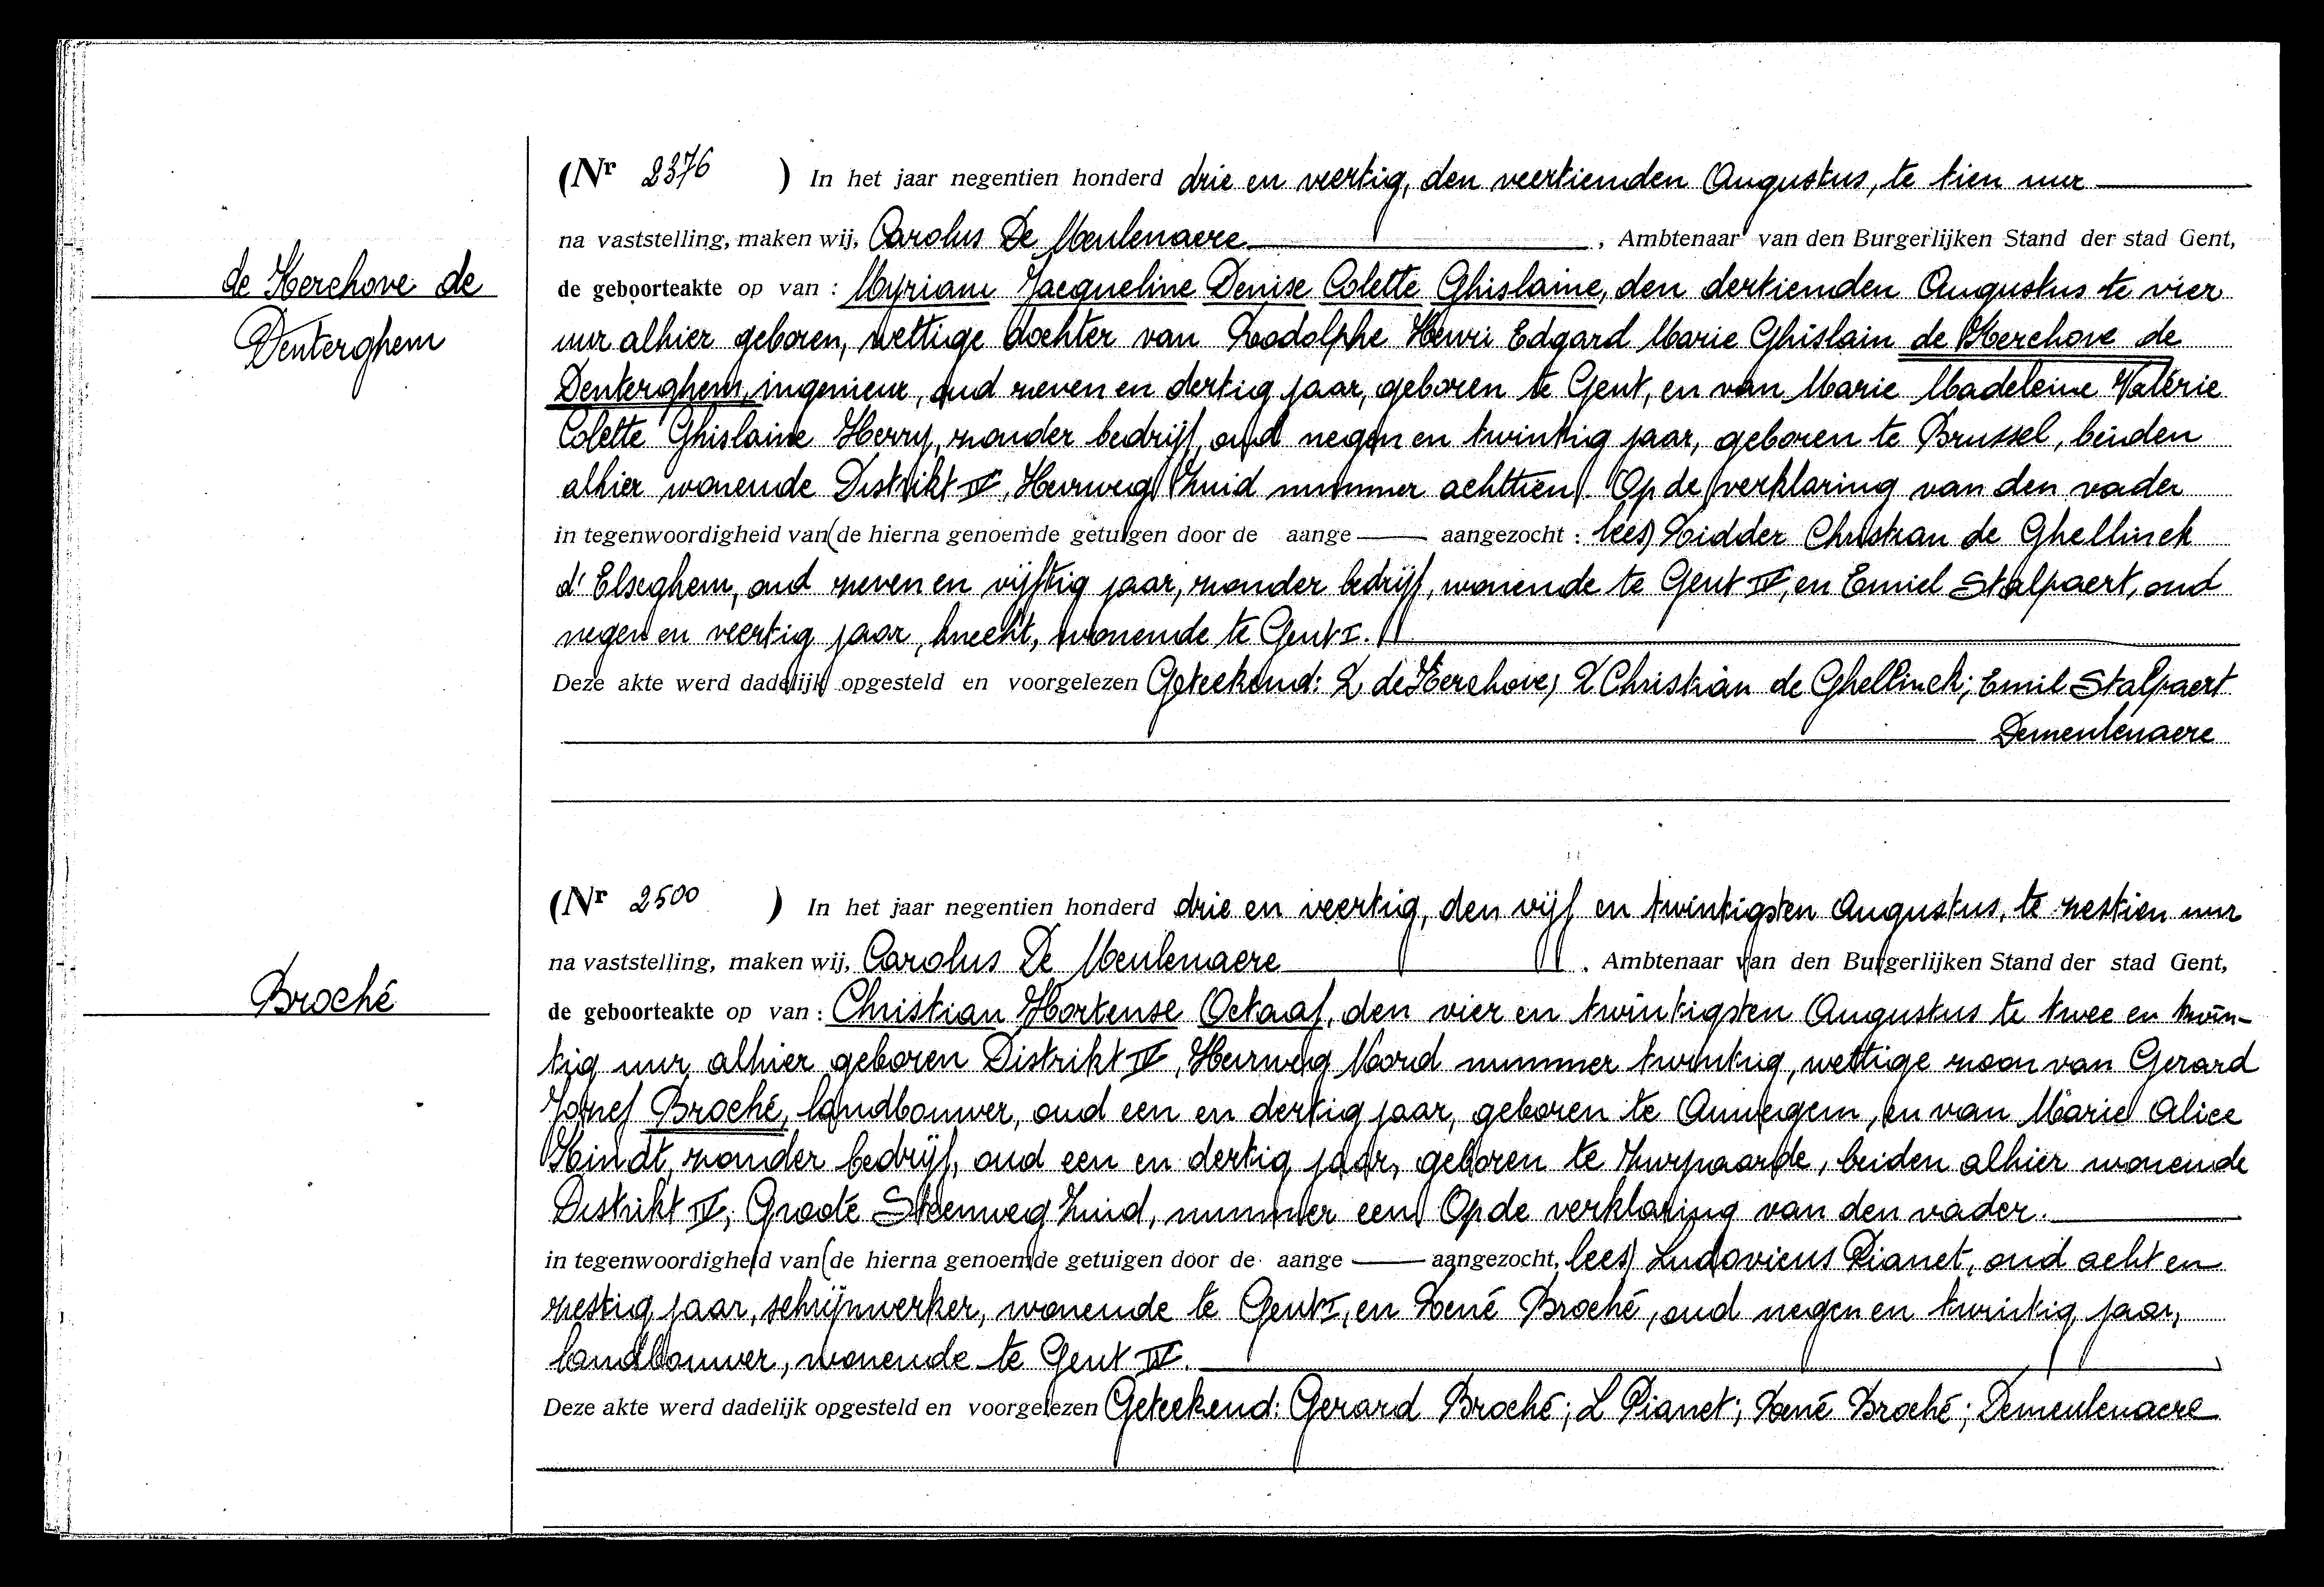 (Nr 2376 ) In het jaar negentien honderd drie en veertig, den veertienden Augustus, te tien uur
na vaststelling, maken wij, Carolus De Meulenaere, Ambtenaar van den Burgerlijken Stand der stad Gent,
de Kerchove de
Denterghem
de geboorteakte op van : Myriam Jacqueline Denise Colette Ghislaine, den dertienden Augustus te vier
uur alhier geboren, wettige dochter van Rodolphe Henri Edgard Marie Ghislain de Kerchove de
Denterghem, ingenieur, oud zeven en dertig jaar, geboren te Gent, en van Marie Madeleine Valérie
Colette Ghislaine Herry, zonder bedrijf, oud negen en twintig jaar, geboren te Brussel, beiden
alhier wonende Distrikt IV, Heirweg Zuid nummer achttien. Op de verklaring van den vader
in tegenwoordigheid van (de hierna genoemde getuigen door de aange — aangezocht : lees) Ridder Christian de Ghellinck
d'Elseghem, oud zeven en vijftig jaar, zonder bedrijf, wonende te Gent IV, en Emiel Stalpaert, oud
negen en veertig jaar, knecht, wonende te Gent I.
Deze akte werd dadelijk opgesteld en voorgelezen Geteekend: R de Kerchove; R Christian de Ghellinck; Emil Stalpaert
Demeulenaere
(Nr 2500 ) In het jaar negentien honderd drie en veertig, den vijf en twintigsten Augustus, te zestien uur
na vaststelling, maken wij, Carolus De Meulenaere, Ambtenaar van den Burgerlijken Stand der stad Gent,
Broché
de geboorteakte op van : Christian Hortense Octaaf, den vier en twintigsten Augustus te twee en twin-
tig uur alhier geboren Distrikt IV, Heirweg Noord nummer twintig, wettige zoon van Gerard
Jozef Broché, landbouwer, oud een en dertig jaar, geboren te Anvegem, en van Marie Alice
Kindt, zonder bedrijf, oud een en dertig jaar, geboren te Zwijnaarde, beiden alhier wonende
Distrikt IV, Groote Steenweg Zuid, nummer een. Op de verklaring van den vader.
in tegenwoordigheid van (de hierna genoemde getuigen door de aange — aangezocht, lees) Ludovicus Pianet, oud acht en
zestig jaar, schrijnwerker, wonende te Gent I, en René Broché, oud negen en twintig jaar,
landbouwer, wonende te Gent IV.
Deze akte werd dadelijk opgesteld en voorgelezen Geteekend: Gerard Broché; L Pianet; René Broché; Demeulenaere